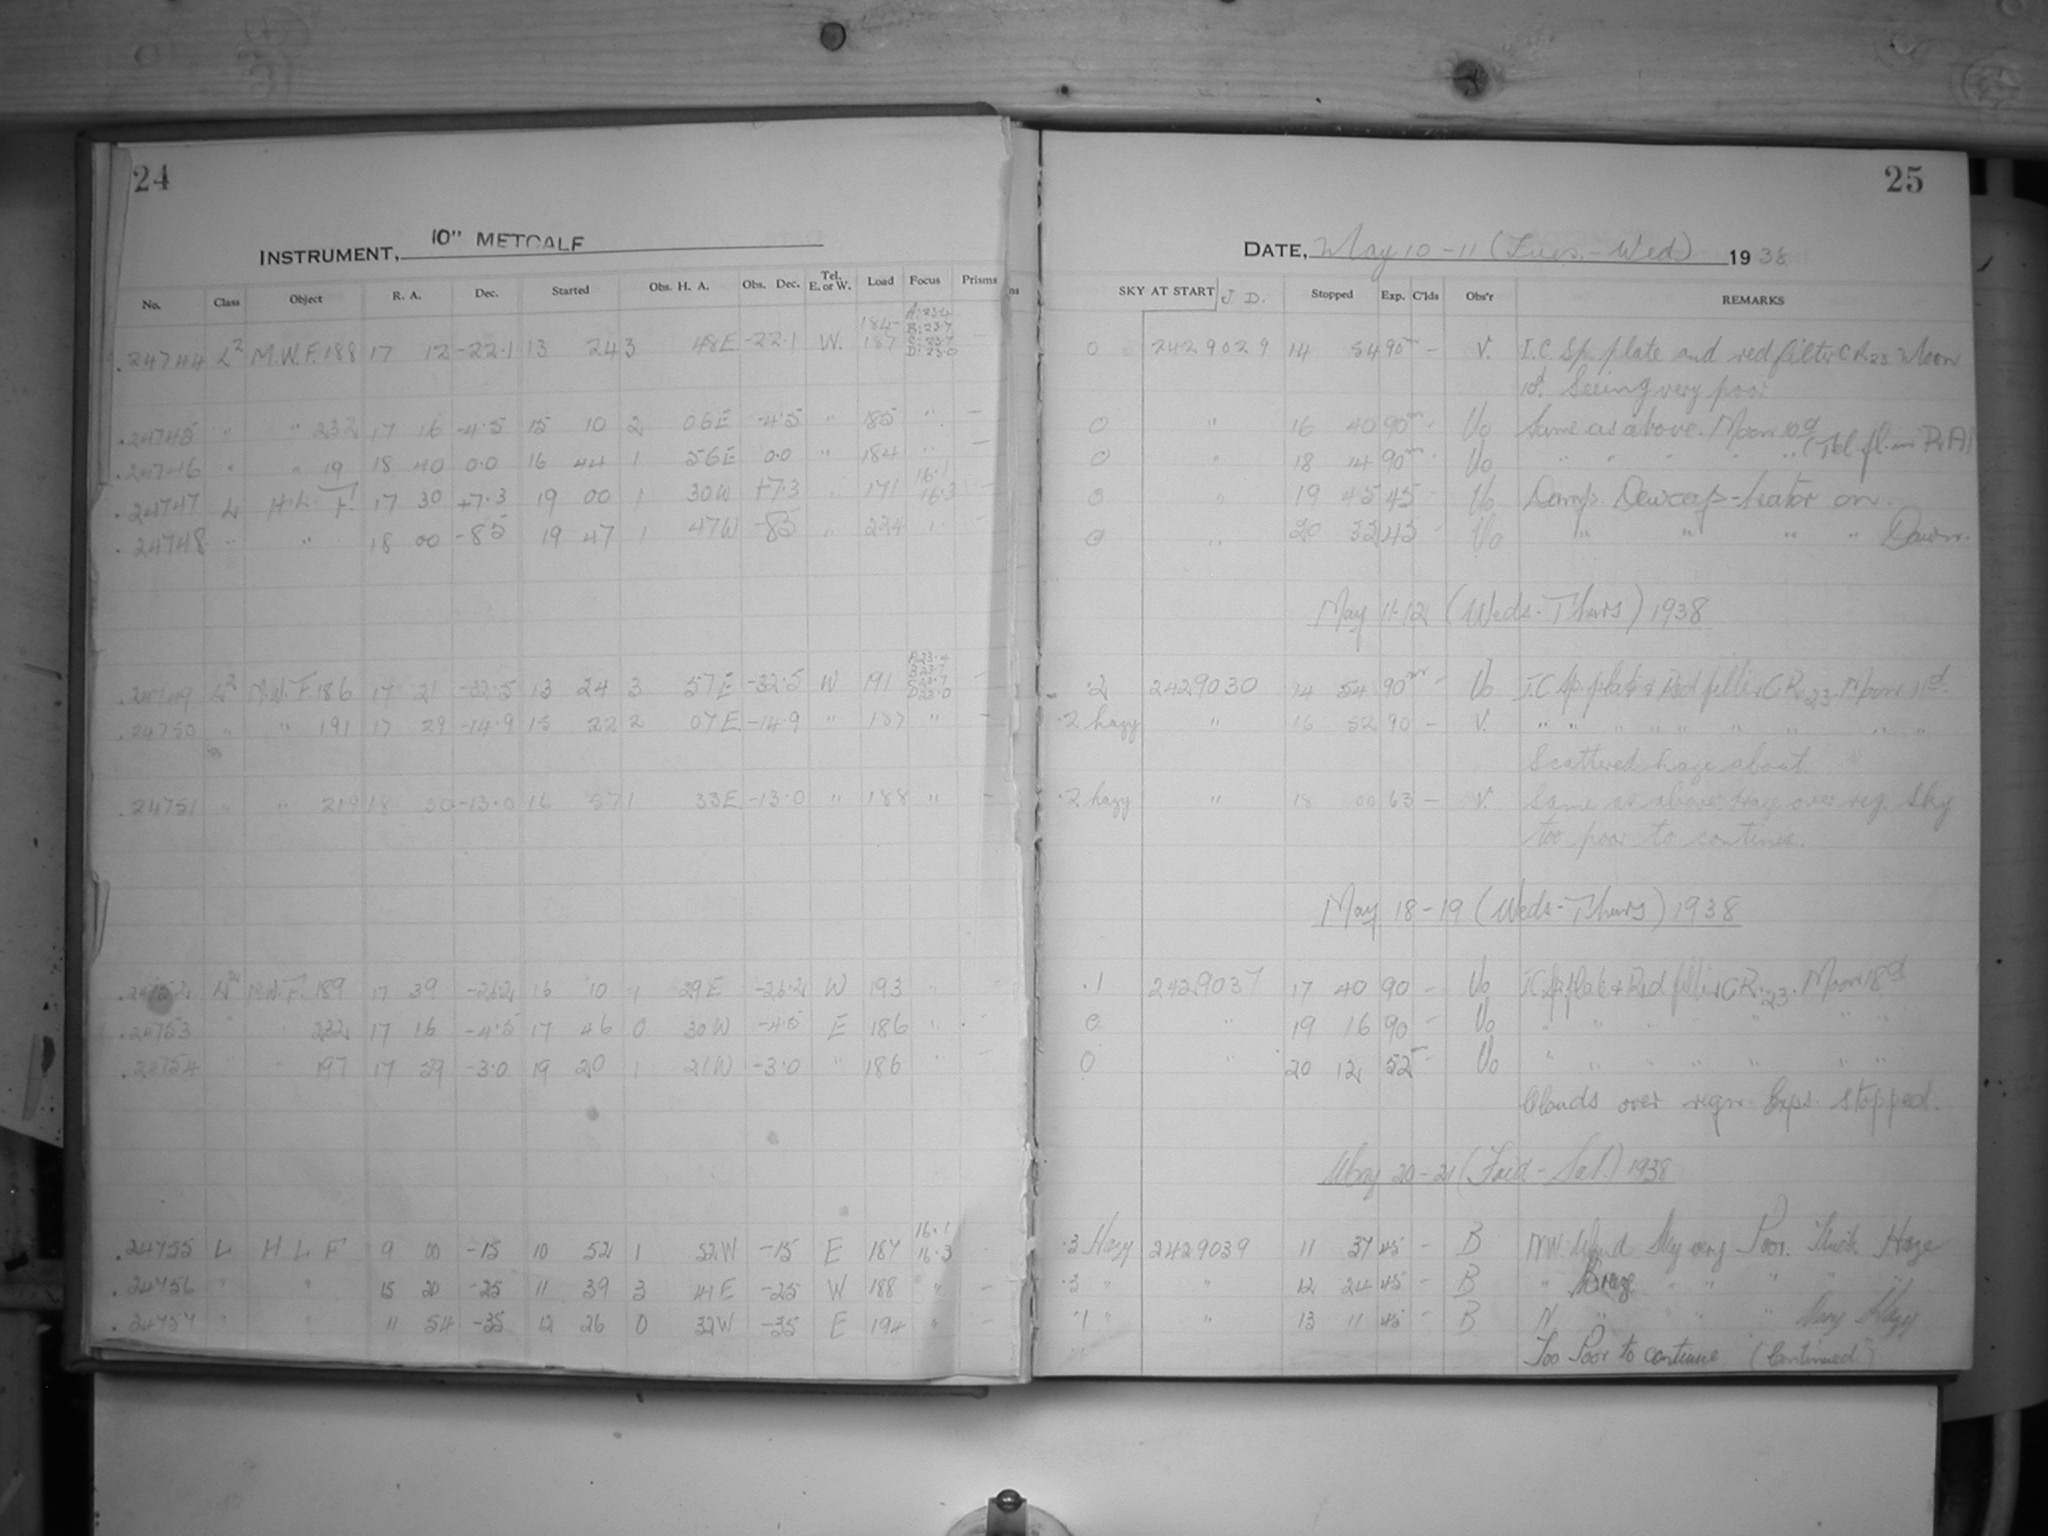 24
INSTRUMENT, 10" METCALF
No. Class Object R. A. Dec. Started Obs. H. A. Obs. Dec. Tel. E. or W. Load Focus Prisms
.24744 L2 M.W.F. 188 17 12 -22.1 13 24 3 48E -22.1 W. 184- 187 A:23.4 B:23.7 C:23.7 D:23.0 -
.24745 " " 232 17 16 -4.5 15 10 2 06E -4.5 " 185 " -
.24746 " " 19 18 40 0.0 16 44 1 56E 0.0 " 184 " -
.24747 L H.L.F. 17 30 +7.3 19 00 1 30W +7.3 " 171 16.1 16.3 -
.24748 " " 18 00 -85 19 47 1 47W -85 " 224 " -
.24749 L2 M.W.F. 186 17 21 -32.5 13 24 3 57E -32.5 W 191 A:23.4 B:23.7 C:23.7 D:23.0 -
.24750 " " 191 17 29 -14.9 15 22 2 07E -14.9 " 187 " -
.24751 " " 219 18 30 -13.0 16 57 1 33E -13.0 " 188 " -
.24752 M.W.F. 189 17 39 -26.2 16 10 1 29E -26.2 W 193 "
.24753 " 232 17 16 -4.5 17 46 0 30W -4.5 E 186 " -
.24754 " 197 17 59 -3.0 19 20 1 21W -3.0 " 186 -
.24755 L H L F 9 00 -15 10 52 1 52W -15 E 187 16.1 16.3 -
.24756 " " 15 20 -25 11 39 3 41E -25 W 188 " -
.24757 " " 11 54 -35 12 26 0 32W -35 E 194 " -
25
DATE, May 10-11 (Tues.-Wed.) 1938
SKY AT START J D. Stopped Exp. C'lds Obs'r REMARKS
0 2429029 14 54 90m - V. I.C. Sp. plate and red filter CR23 Moon
10d. Seeing very poor.
0 " 16 40 90m - Uo Same as above. Moon 10d
0 " 18 14 90m - Uo " " " " (Tel. fl. in R.A)
0 " 19 45 45 - Uo Damp. Dewcap-heater on.
0 " 20 32 45 - Uo " " " " Dawn.
May 11-12 (Weds-Thurs) 1938
.2 2429030 14 54 90m - Uo I.C. Sp. plate & Red filter CR.23. Moon 11d.
.2 hazy " 16 52 90 - V. " " " " " " " " "
Scattered haze about.
.2 hazy " 18 00 63 - V. Same as above. Haze over reg. Sky
too poor to continue.
May 18-19 (Weds-Thurs) 1938
.1 2429037 17 40 90 - Uo I.C. Sp. plate & Red filter CR.23. Moon 18d
0 " 19 16 90 - Uo " " " " " "
0 " 20 12 52m - Uo " " " " " "
Clouds over regn. Exps. stopped.
May 20-21 (Frid-Sat.) 1938
.3 Hazy 2429039 11 37 45 - B NW. Wind Sky very Poor. Thick Haze
.3 " " 12 24 45 - B " Breeze " " " " "
.1 " " 13 11 45 - B N " " " " Very Hazy
Too Poor to continue (Continued)